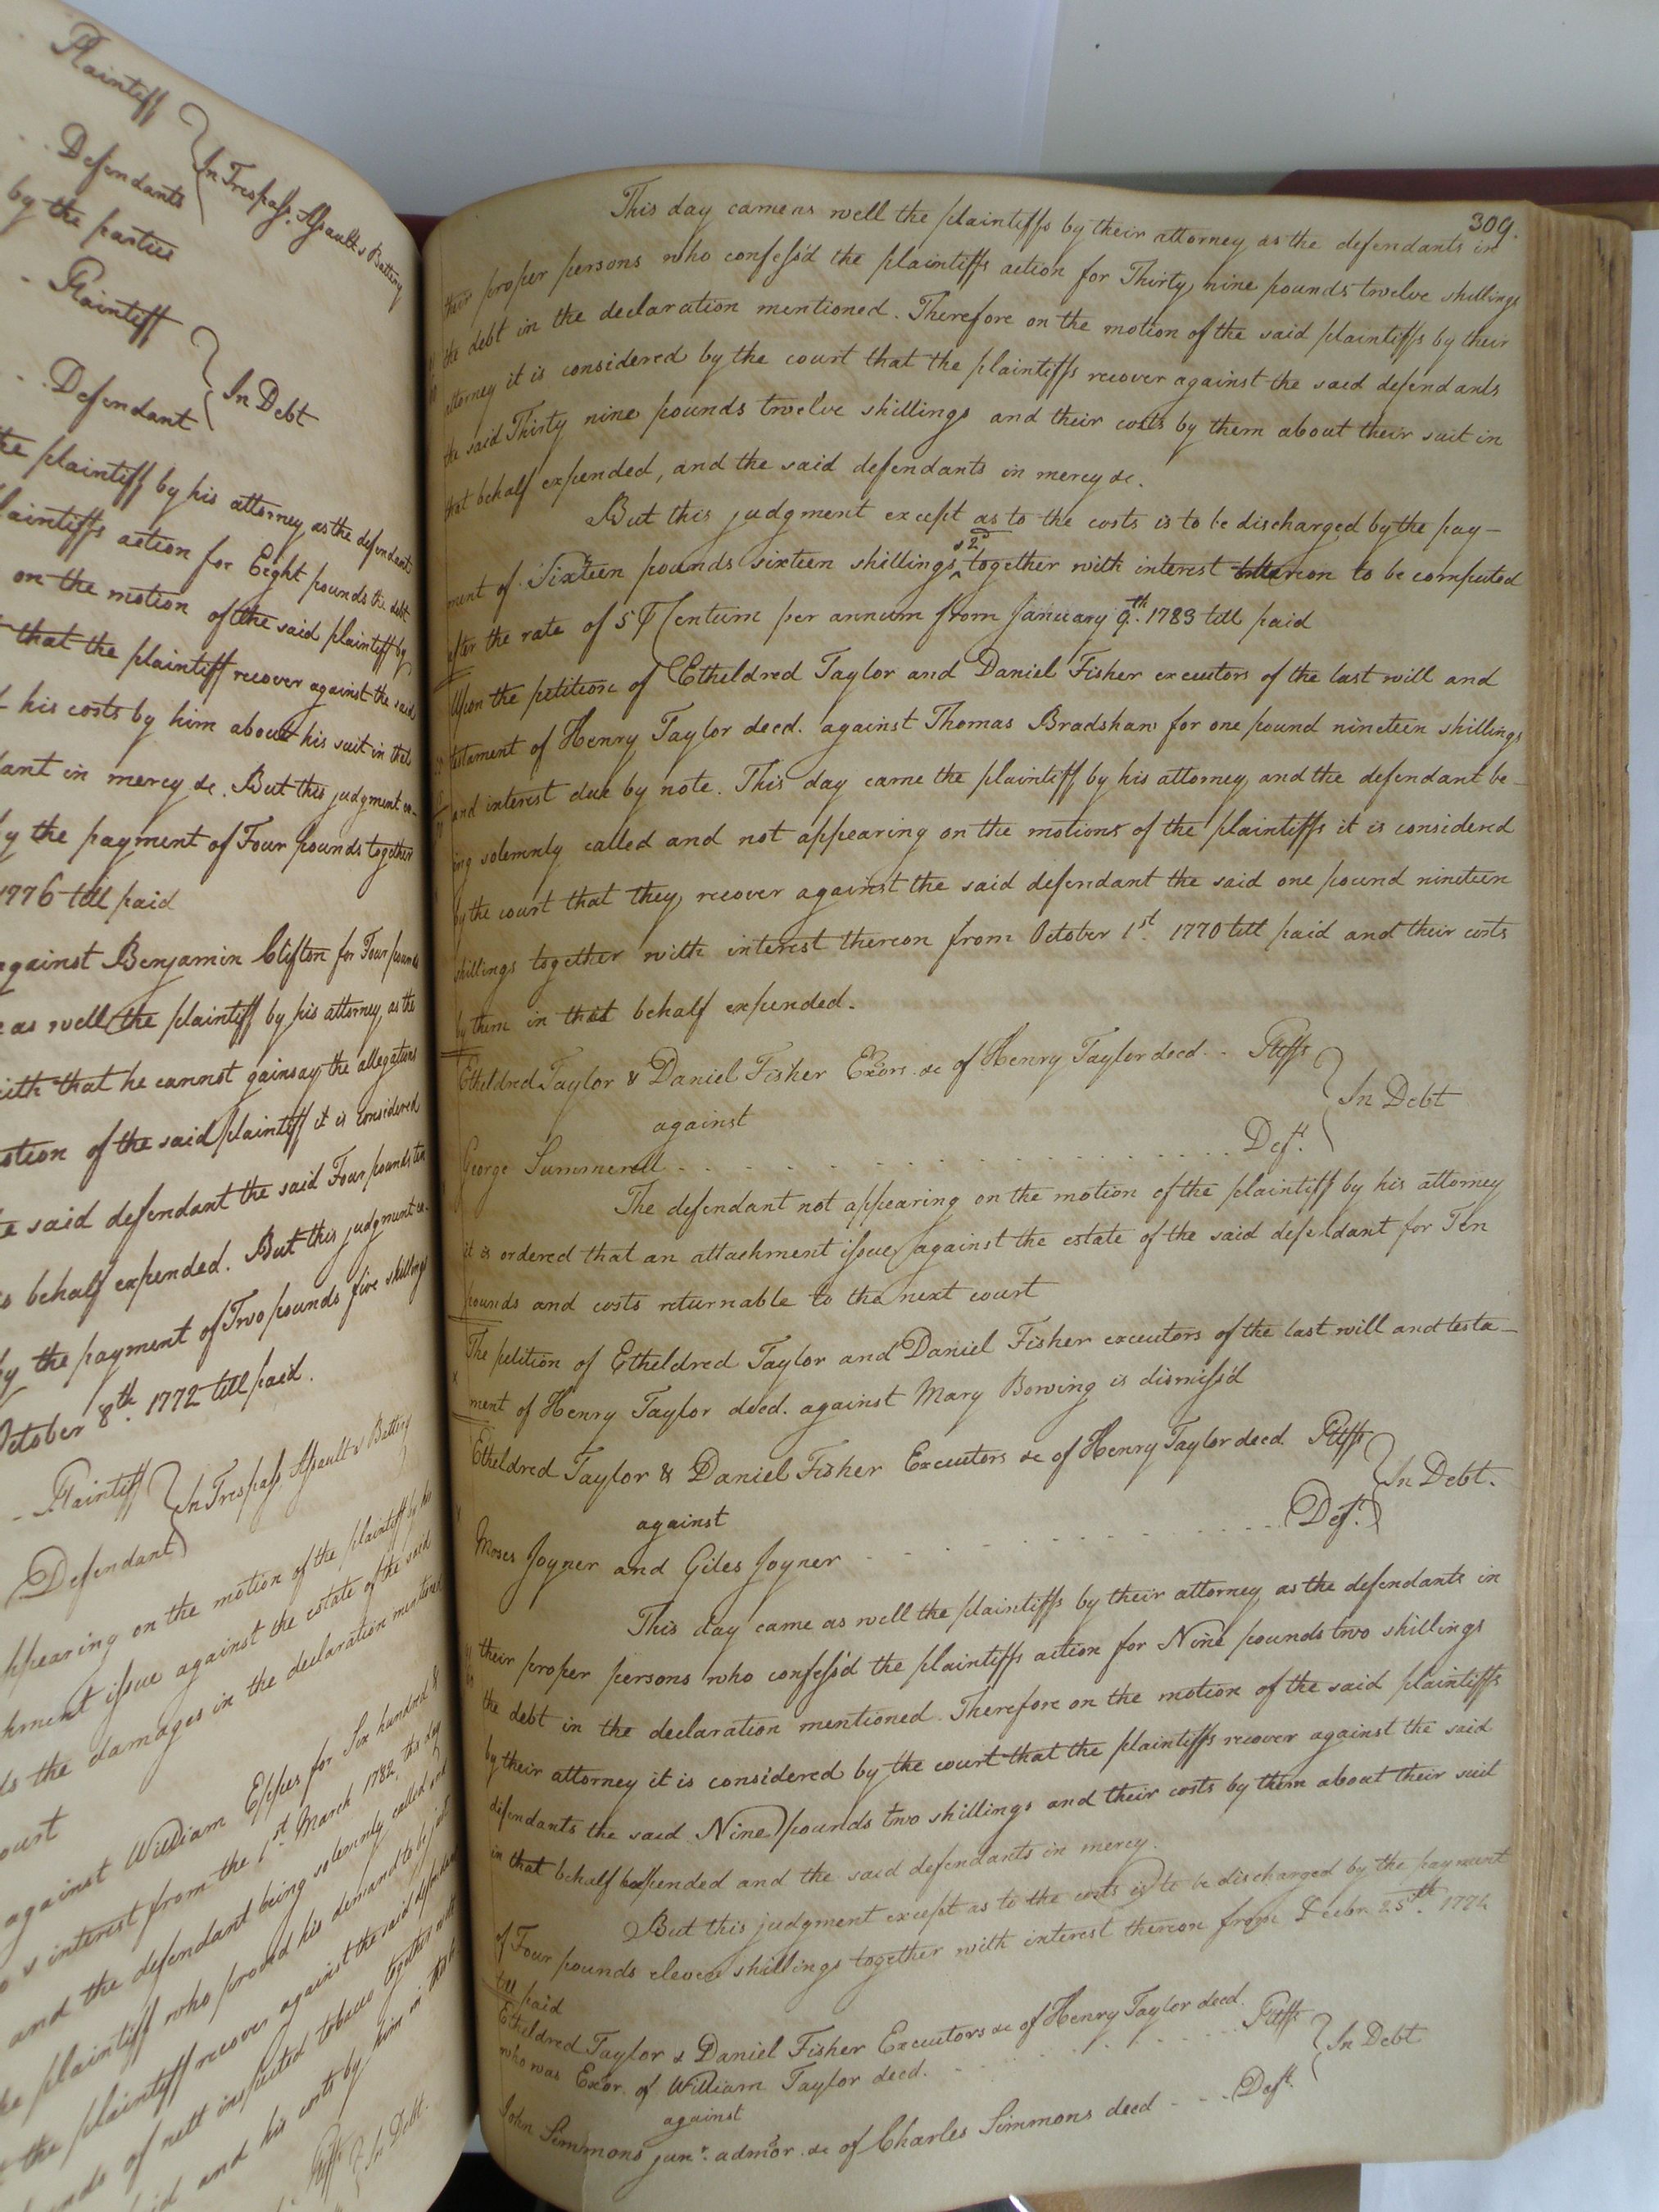 Plaintiff
In Trespass, Assault & Battery
Defendants
by the parties
Plaintiff
In Debt
Defendant
the plaintiff by his attorney as the defendant
plaintiffs action for Eight pounds the debt
on the motion of the said plaintiff by
that the plaintiff recover against the said
his costs by him about his suit in that
in mercy &c. But this judgment ex-
the payment of Four pounds together
1776 till paid
against Benjamin Clifton for Four pounds
as well the plaintiff by his attorney as the
that he cannot gainsay the allegations
of the said plaintiff it is considered
said defendant the said Four pounds ten
behalf expended. But this judgment ex-
the payment of Two pounds five shillings
October 8th. 1772 till paid.
Plaintiff
In Trespass, Assault & Battery
Defendant
appearing on the motion of the plaintiff by his
issue against the estate of the said
the damages in the declaration mentioned
against William Eppes for Six hundred &
& interest from the 1st. March 1782, this day
and the defendant being solemnly called and
plaintiff who proved his demand to be just
the plaintiff recover against the said defendant
of nett inspected tobacco together with
and his costs by him in this
Pltff
In Debt.
309.
This day came as well the plaintiffs by their attorney as the defendants in
their proper persons who confess'd the plaintiffs action for Thirty nine pounds twelve shillings
the debt in the declaration mentioned. Therefore on the motion of the said plaintiffs by their
attorney it is considered by the court that the plaintiffs recover against the said defendants
the said Thirty nine pounds twelve shillings and their costs by them about their suit in
that behalf expended, and the said defendants in mercy &c.
But this judgment except as to the costs is to be discharged by the pay-
& 2d
ment of Sixteen pounds sixteen shillings ^ together with interest thereon to be computed
after the rate of 5 ⅌ Centum per annum from January 9th. 1783 till paid
Upon the petition of Etheldred Taylor and Daniel Fisher executors of the last will and
testament of Henry Taylor deced. against Thomas Bradshaw for one pound nineteen shillings
and interest due by note. This day came the plaintiff by his attorney, and the defendant be-
ing solemnly called and not appearing on the motions of the plaintiffs it is considered
by the court that they recover against the said defendant the said one pound nineteen
shillings together with interest thereon from October 1st. 1770 till paid and their costs
by them in that behalf expended.
Etheldred Taylor & Daniel Fisher Exors. &c of Henry Taylor deced. - Pltffs
against
In Debt
George Summerell - - - - - - - - - - - - Deft.
The defendant not appearing on the motion of the plaintiff by his attorney
it is ordered that an attachment issue against the estate of the said defendant for Ten
pounds and costs returnable to the next court
The petition of Etheldred Taylor and Daniel Fisher executors of the last will and testa-
ment of Henry Taylor deced. against Mary Bowing is dismiss'd
Etheldred Taylor & Daniel Fisher Executors &c of Henry Taylor deced. Pltffs
against
In Debt.
Moses Joyner and Giles Joyner - - - - - - - - - Deft.
This day came as well the plaintiffs by their attorney as the defendants in
their proper persons who confess'd the plaintiffs action for Nine pounds two shillings
the debt in the declaration mentioned. Therefore on the motion of the said plaintiffs
by their attorney it is considered by the court that the plaintiffs recover against the said
defendants the said Nine pounds two shillings and their costs by them about their suit
in that behalf expended and the said defendants in mercy.
But this judgment except as to the costs is to be discharged by the payment
of Four pounds eleven shillings together with interest thereon from Decbr. 25th.
till paid
Etheldred Taylor & Daniel Fisher Executors &c of Henry Taylor deced.
who was Exor. of William Taylor deced. - - - - - - Pltffs
against
In Debt
John Simmons junr. admor. &c of Charles Simmons deced - - - Deft.